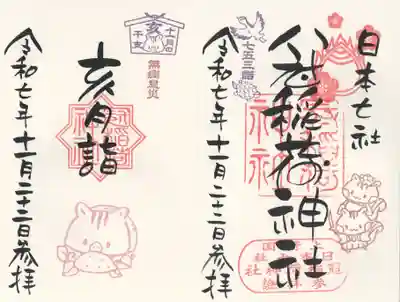 日本七社
冠稲荷神社
七五三詣
令和七年十一月二十二日参拝
十一月の
干支
亥
無病息災
亥月詣
令和七年十一月二十二日参拝